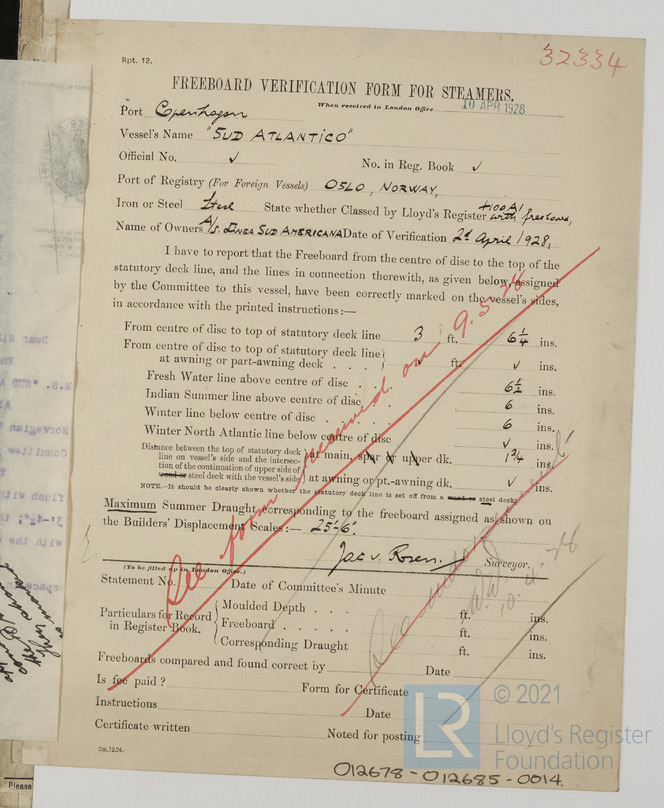 32334
Rpt. 12.
FREEBOARD VERIFICATION FORM FOR STEAMERS.
When received in London Office 10 APR 1928
Port Copenhagen
Vessel's Name "SUD ATLANTICO"
Official No. ✓ No. in Reg. Book ✓
Port of Registry (For Foreign Vessels) OSLO, NORWAY,
Iron or Steel Steel State whether Classed by Lloyd's Register +100A1 with freeboard,
Name of Owners A/S. LINEA SUD AMERICANA Date of Verification 2d April 1928,
I have to report that the Freeboard from the centre of disc to the top of the
statutory deck line, and the lines in connection therewith, as given below, assigned
by the Committee to this vessel, have been correctly marked on the vessel's sides,
in accordance with the printed instructions:—
From centre of disc to top of statutory deck line 3 ft. 6¼ ins.
From centre of disc to top of statutory deck line
at awning or part-awning deck . . . ✓ ft. ✓ ins.
Fresh Water line above centre of disc . . 6½ ins.
Indian Summer line above centre of disc 6 ins.
Winter line below centre of disc . . . . 6 ins.
Winter North Atlantic line below centre of disc ✓ ins.
Distance between the top of statutory deck
line on vessel's side and the intersec-
tion of the continuation of upper side of
wood or steel deck with the vessel's side
at main, spar or upper dk. 1¾ ins.
at awning or pt.-awning dk. ✓ ins.
NOTE.—It should be clearly shown whether the statutory deck line is set off from a wood or steel deck.
Maximum Summer Draught corresponding to the freeboard assigned as shown on
the Builders' Displacement Scales:— 25'-6".
Jac v. Rosen. Surveyor.
(To be filled up in London Office.)
Statement No. Date of Committee's Minute
Particulars for Record
in Register Book.
Moulded Depth . . . ft. ins.
Freeboard . . . . . ft. ins.
Corresponding Draught ft. ins.
Freeboards compared and found correct by Date
Is fee paid? Form for Certificate
Instructions Date
Certificate written Noted for posting
See form received on 9.5.28
2m.12.24.
LR
© 2021
Lloyd's Register
Foundation
012678-012685-0014
Dear Si
M.S. "SUD A
Norwegian
Committee
flush with
with the
spaces
Please